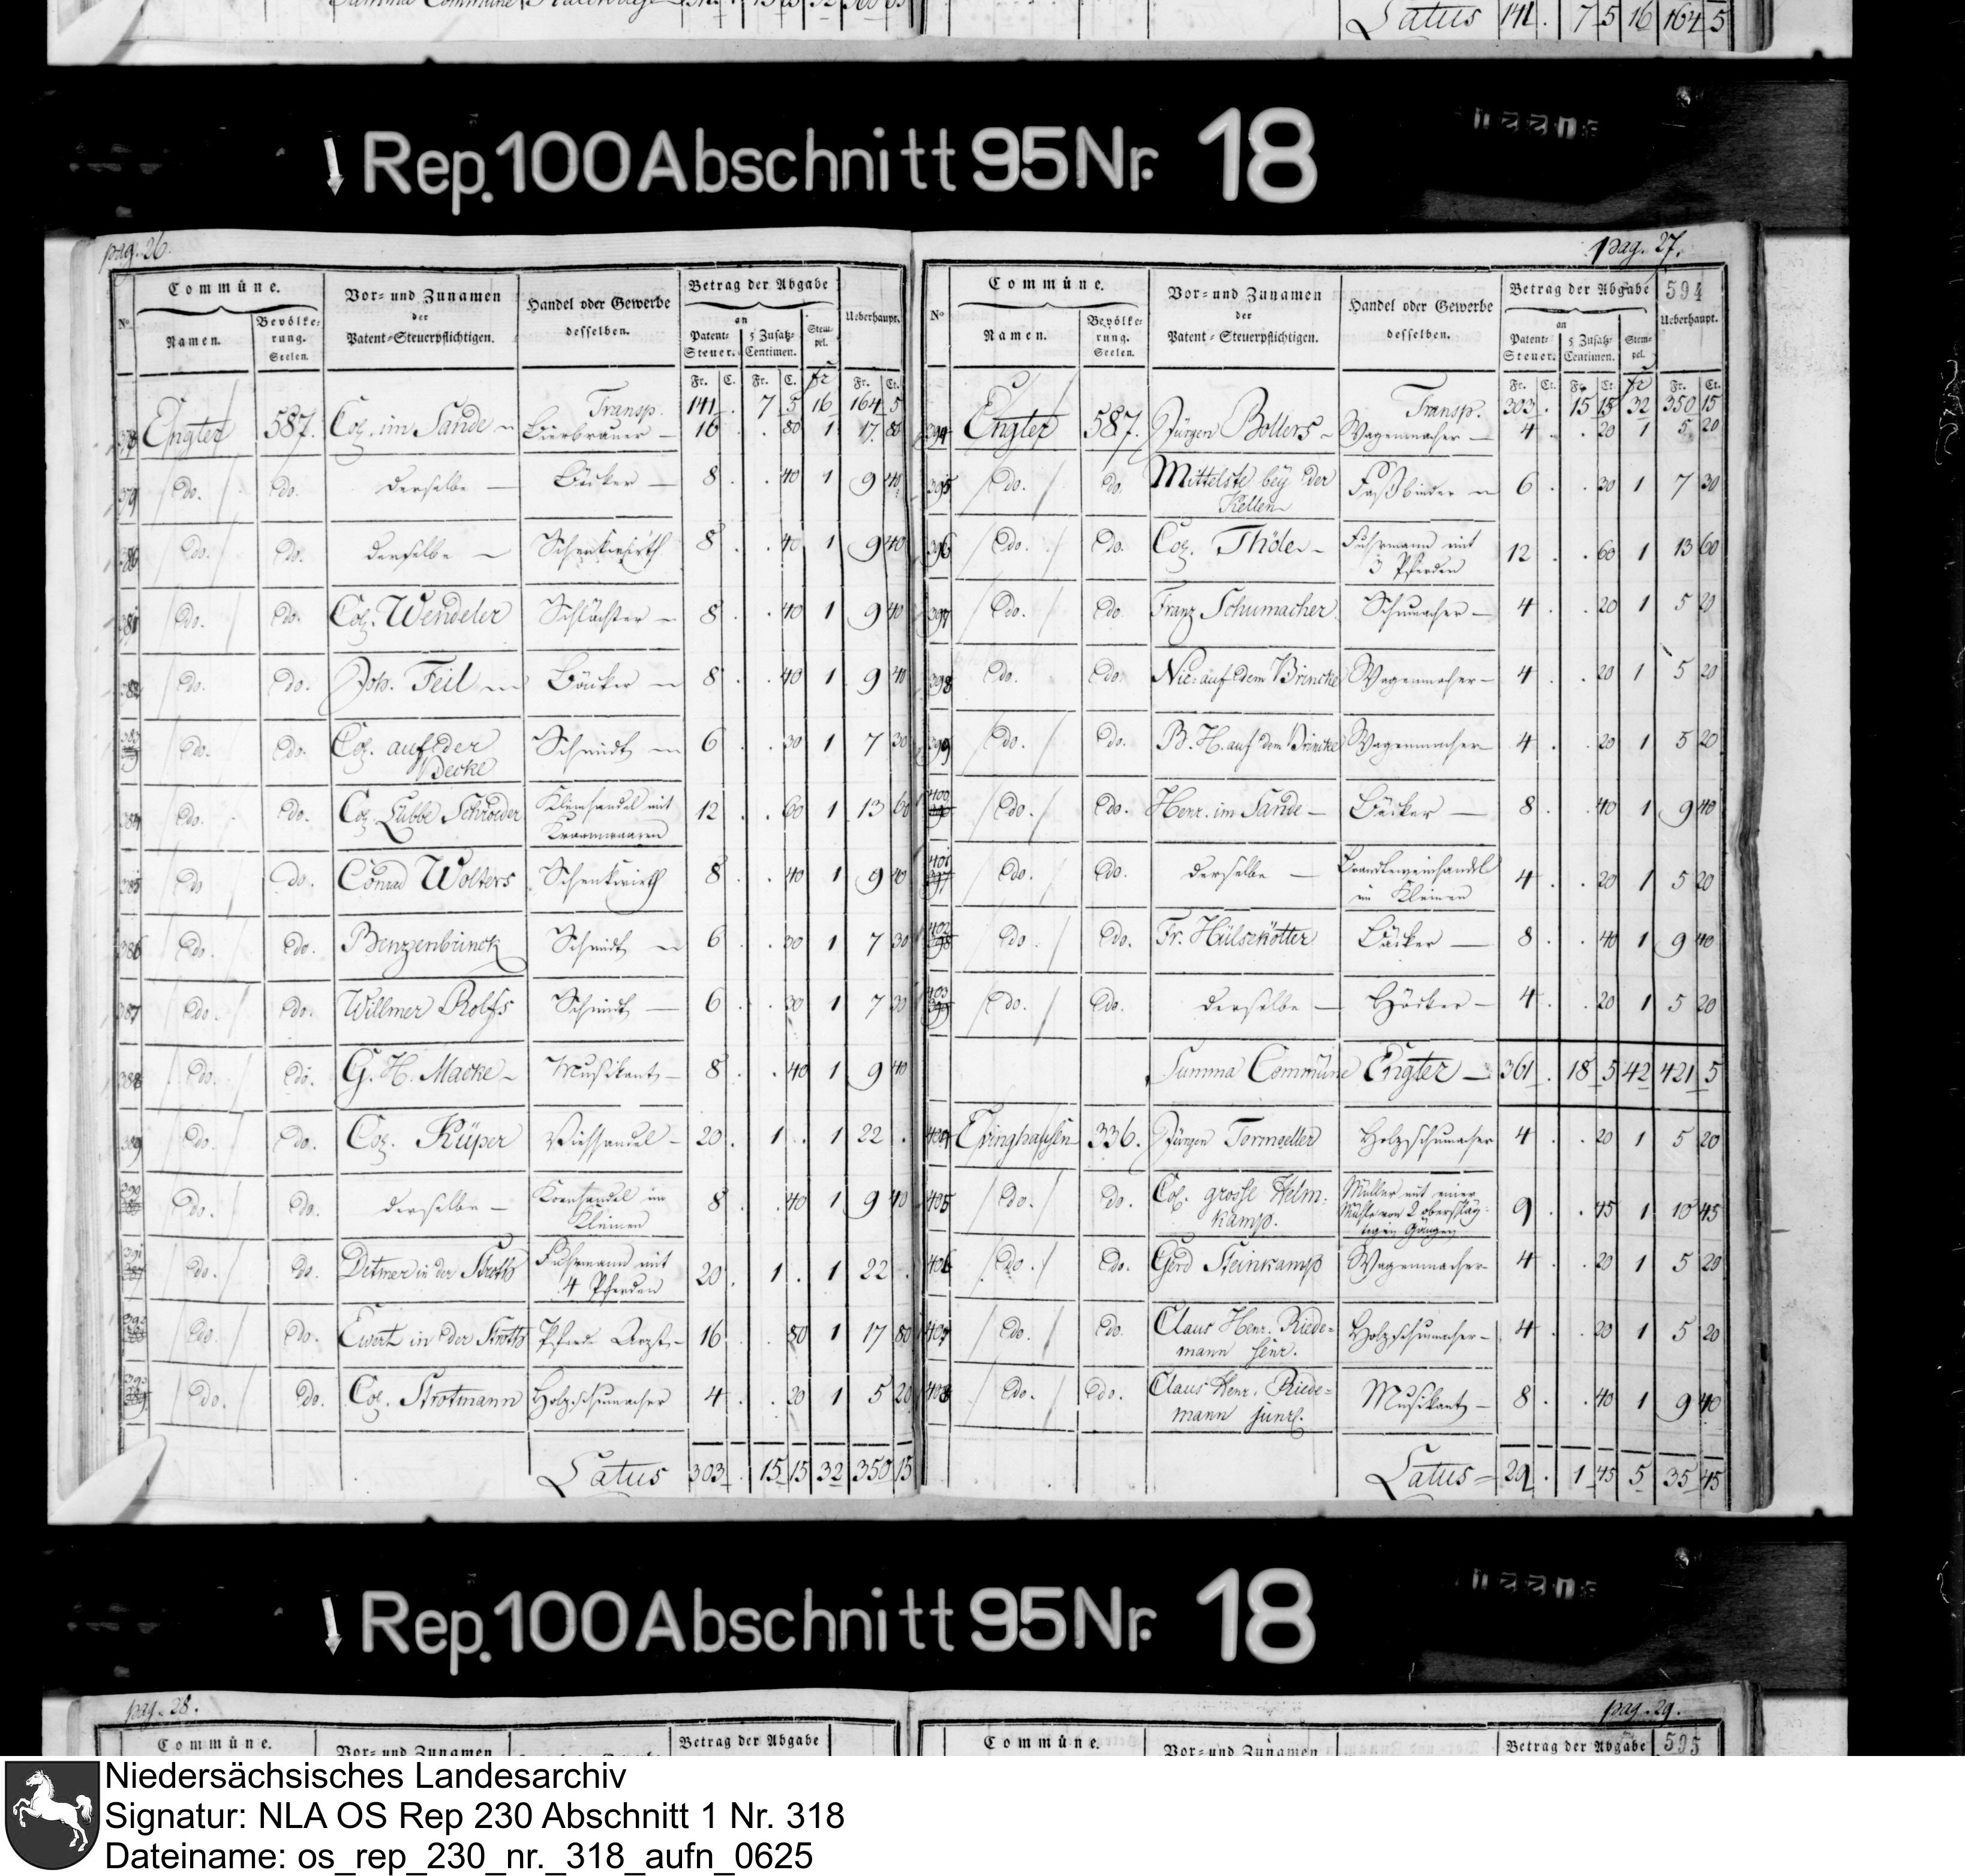 Latus 141 . 7 5 16 164 5
↓ Rep. 100 Abschnitt 95 Nr. 18
pag. 26.
No Commüne. Vor- und Zunamen der Patent-Steuerpflichtigen. Handel oder Gewerbe desselben. Betrag der Abgabe Ueberhaupt.
Namen. Bevölkerung. Seelen. an Patent-Steuer. 5 Zusatz-Centimen. Stempel.
Fr. C. Fr. C. fr Fr. Ct.
Transp. 141 . 7 5 16 164 5
378 Engter 587. Col. im Sande Bierbrauer 16 . . 80 1 17 80
379 do. do. derselbe Bäcker 8 . . 40 1 9 40
380 do. do. derselbe Schenkwirth 8 . . 40 1 9 40
381 do. do. Col. Wendeler Schlächter 8 . . 40 1 9 40
382 do. do. Joh. Feil Bäcker 8 . . 40 1 9 40
383 do. do. Col. auf der Schmidt 6 . . 30 1 7 30
Hecke
384 do. do. Col. Lübbe Schröder Kleinhandel mit 12 . . 60 1 13 60
Kramwaaren
385 do do. Conrad Wolters Schenkwirth 8 . . 40 1 9 40
386 do. do. Benzenbrinck Schmidt 6 . . 30 1 7 30
387 do. do. Willmer Rolfs Schmidt 6 . . 30 1 7 30
388 do. do. G. H. Macke Musikant 8 . . 40 1 9 40
389 do. do. Col. Küper Viehhandel 20 . 1 . 1 22 .
390 do. do. derselbe Kornhandel im 8 . . 40 1 9 40
Kleinen
391 do. do. Detmer in der Stroth Fuhrmann mit 20 . 1 . 1 22 .
4 Pferden
392 do. do. Ewert in der Stroth Pferde Arzt 16 . . 80 1 17 80
393 do. do. Col. Strotmann Holzschumacher 4 . . 20 1 5 20
Latus 303 . 15 15 32 350 15
pag. 27.
594
No Commüne. Vor- und Zunamen der Patent-Steuerpflichtigen. Handel oder Gewerbe desselben. Betrag der Abgabe Ueberhaupt.
Namen. Bevölkerung. Seelen. an Patent-Steuer. 5 Zusatz-Centimen. Stempel.
Fr. Ct. Fr. Ct. fr Fr. Ct.
Transp. 303 . 15 15 32 350 15
394 Engter 587. Jürgen Bolters Wagenmacher 4 . . 20 1 5 20
395 do. do. Mittelste bey der Faßbinder 6 . . 30 1 7 30
Kellen
396 do. do. Col. Thöle Fuhrmann mit 12 . . 60 1 13 60
3 Pferden
397 do. do. Franz Schumacher Schumacher 4 . . 20 1 5 20
398 do. do. Nic. auf dem Brincke Wagenmacher 4 . . 20 1 5 20
399 do. do. B. H. auf dem Brincke Wagenmacher 4 . . 20 1 5 20
400 do. do. Henr. im Sande Bäcker 8 . . 40 1 9 40
401 do. do. derselbe Brandteweinhandel 4 . . 20 1 5 20
im Kleinen
402 do. do. Fr. Hülskötter Bäcker 8 . . 40 1 9 40
403 do. do. derselbe Höcker 4 . . 20 1 5 20
Summa Commüne Engter 361 . 18 5 42 421 5
404 Epinghausen 336. Jürgen Tormoellen Holzschumacher 4 . . 20 1 5 20
405 do. do. Col. grosse Helm- Müller mit einer 9 . . 45 1 10 45
kamp. Mühle von 2 oberschläg-
tigen Gängen
406 do. do. Gerd Steinkamp Wagenmacher 4 . . 20 1 5 20
407 do. do. Claus Henr. Riede- Holzschumacher 4 . . 20 1 5 20
mann senr.
408 do. do. Claus Henr. Riede- Musikant 8 . . 40 1 9 40
mann junr.
Latus 29 . 1 45 5 35 45
↓ Rep. 100 Abschnitt 95 Nr. 18
pag. 28.
Commüne. Vor- und Zunamen Betrag der Abgabe
pag. 29.
Commüne. Vor- und Zunamen Betrag der Abgabe 595
Niedersächsisches Landesarchiv
Signatur: NLA OS Rep 230 Abschnitt 1 Nr. 318
Dateiname: os_rep_230_nr._318_aufn_0625